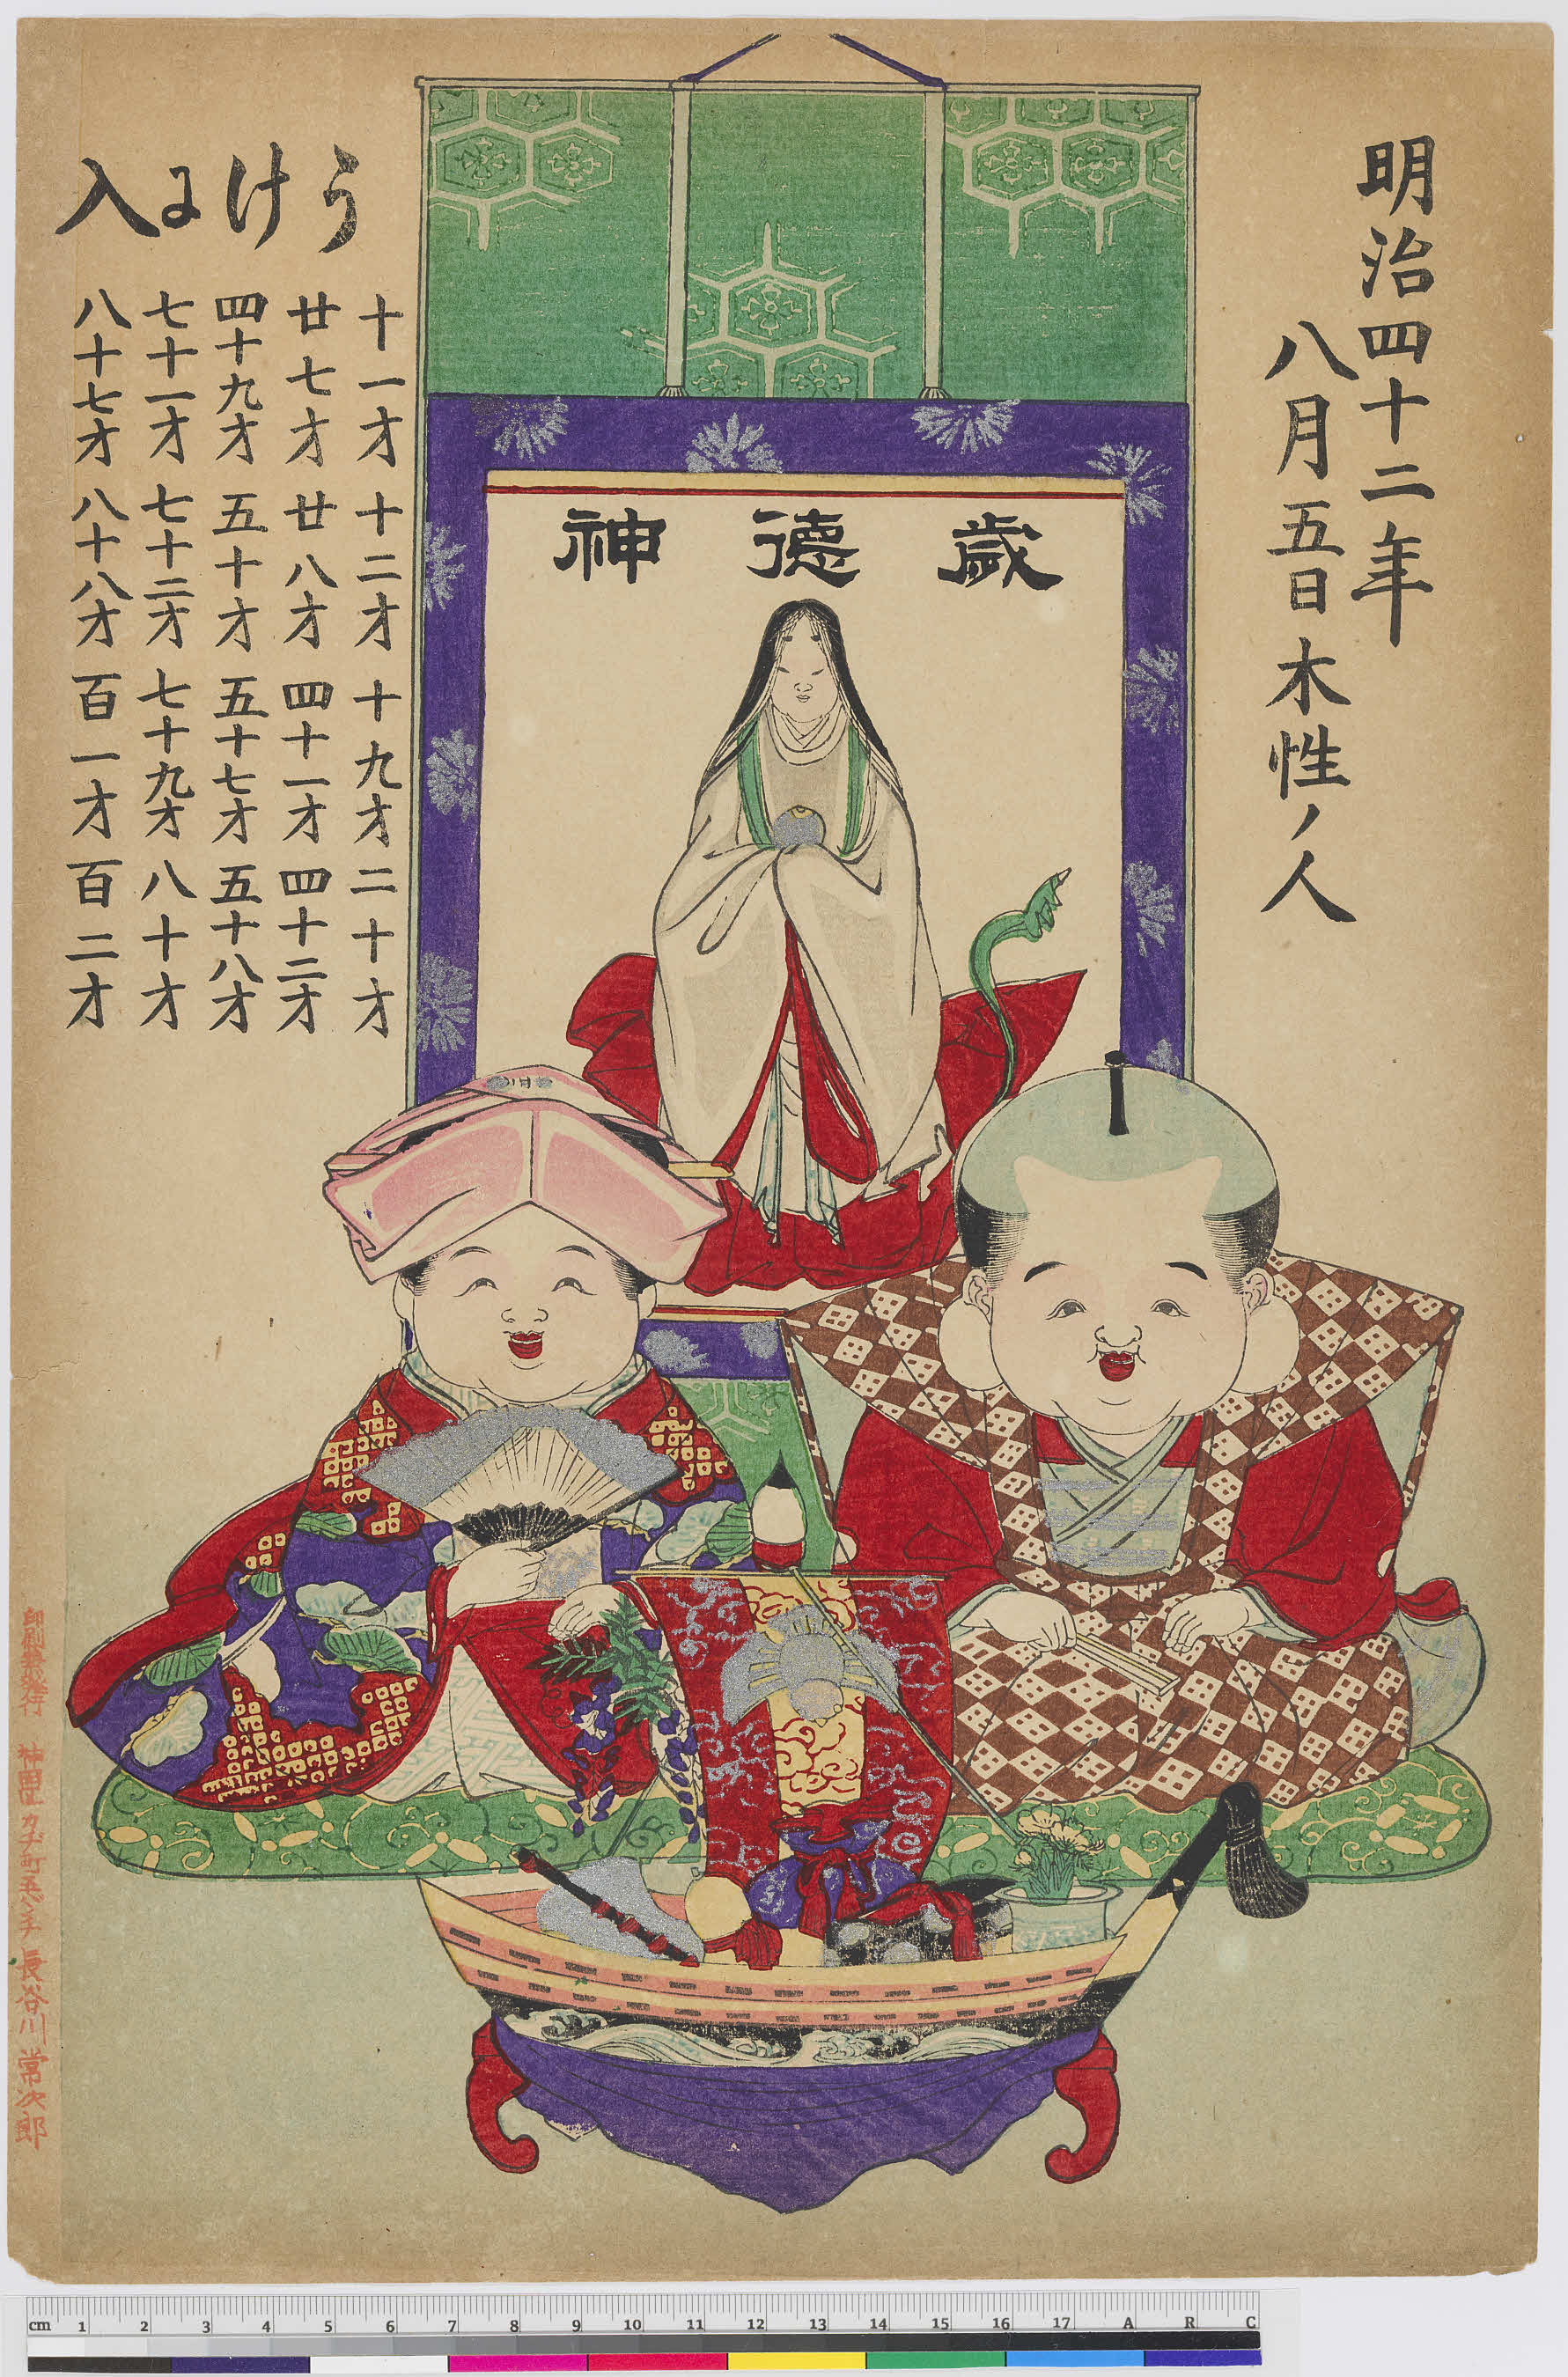 明治四十二年
八月五日木性ノ人
歳徳神
うけに入
十一才 十二才 十九才 二十才
廿七才 廿八才 四十一才 四十二才
四十九才 五十才 五十七才 五十八才
七十一才 七十二才 七十九才 八十才
八十七才 八十八才 百一才 百二才
印刷兼発行 神田区カヂ町五 長谷川常次郎
cm 1 2 3 4 5 6 7 8 9 10 11 12 13 14 15 16 17 A R C